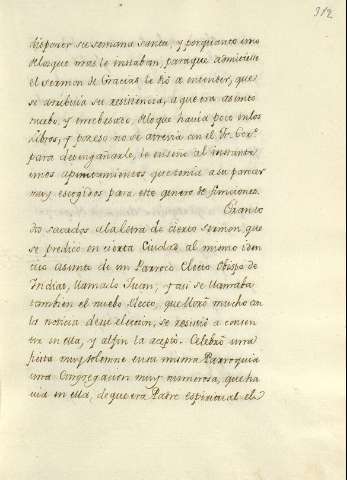 312
disponer su semana santa, y porquanto uno
Bloque mas le instaban, paraque admitiese
el sermon de Gracias le dió a entender, que
se atribuia su resistencia, a que era asunto
nuebo, y enrebesado, de lo que havia poco en los
libros, y por eso no se atrevia con el. Fr. Ger.º
para desengañarle, le enseño al instante
unos apuntamientos que tenia a su parecer
muy escogidos para este genero de funciones.
Eran to
dos sacados a la letra de cierto sermon que
se predicó en cierta Ciudad al mismo iden
tico asunto de un Parroco electo Obispo de
Indias, llamado Juan, y asi se llamaba
tambien el nuebo electo, que lloró mucho con
la noticia de su eleccion, se resistió a consen
tir en ella, y alfin la aceptó. Celebró una
fiesta muy solemne en su misma Parroquia
una Congregacion muy numerosa, que ha
via en ella, de que era Padre espiritual el